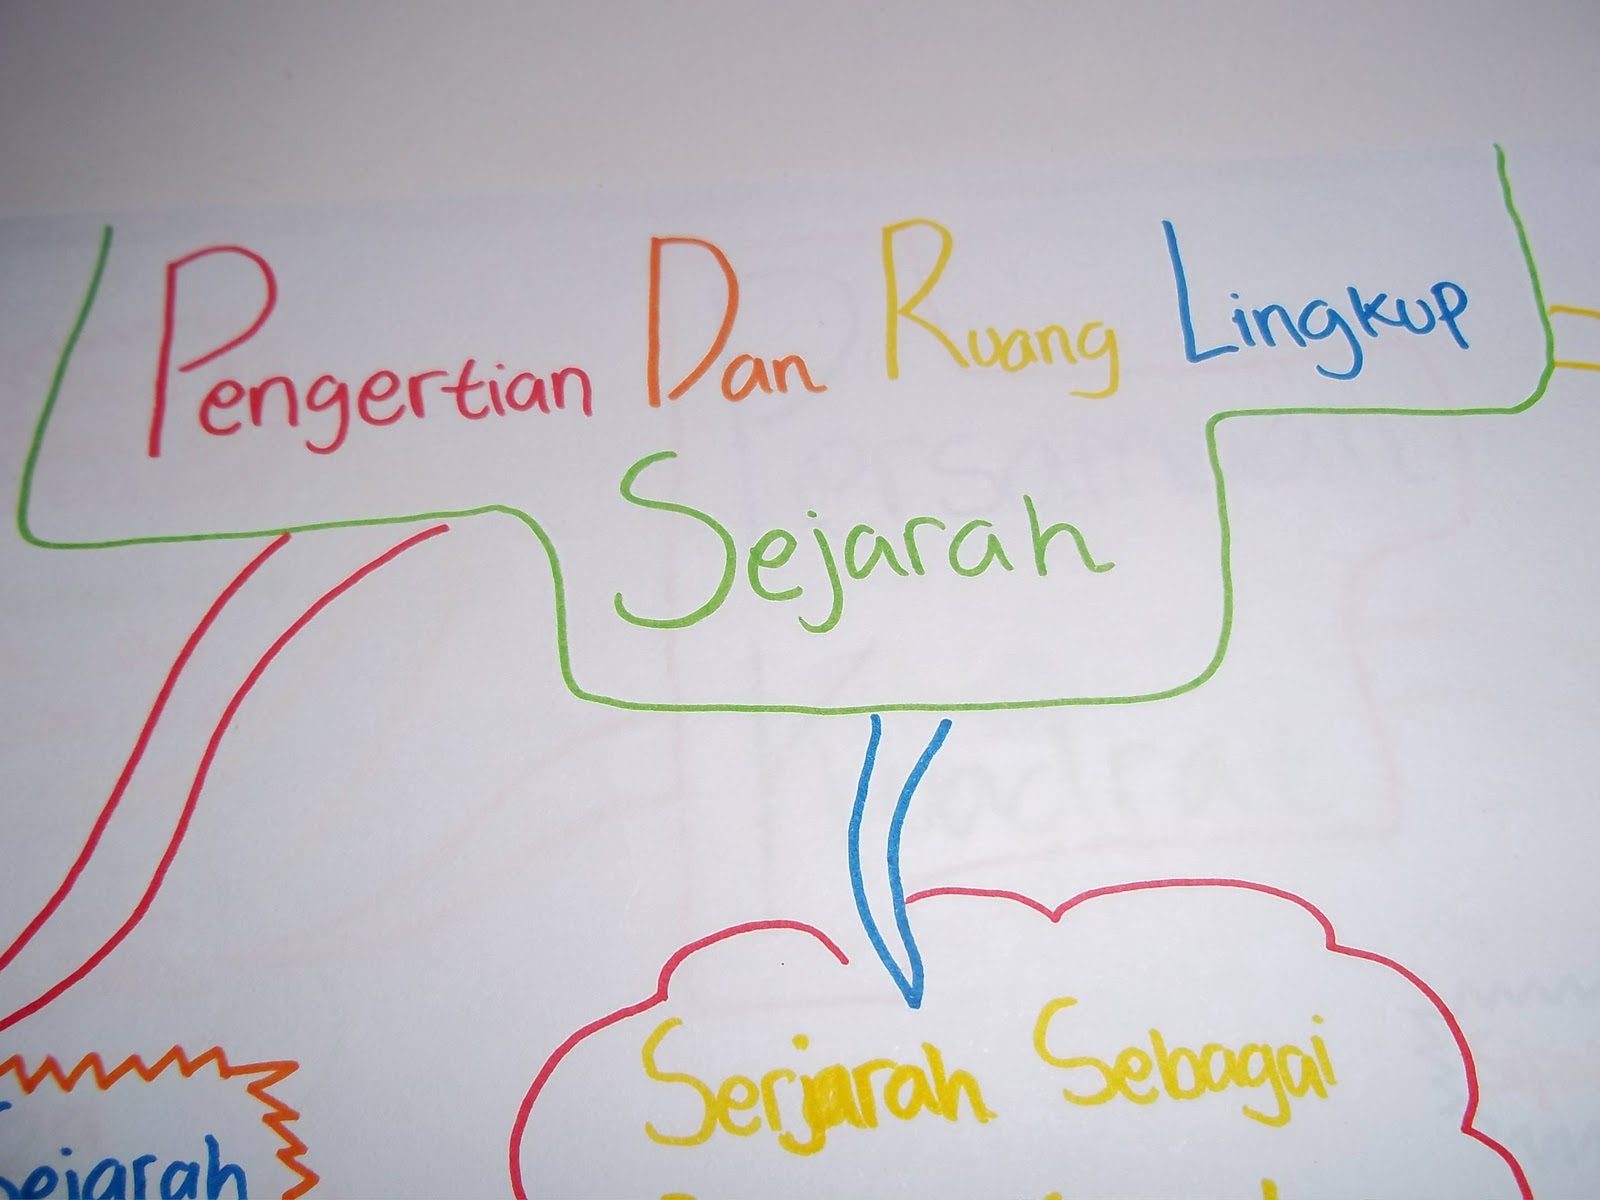 Pengertian Dan Ruang Lingkup
Sejarah
Serjarah Sebagai
Sejarah